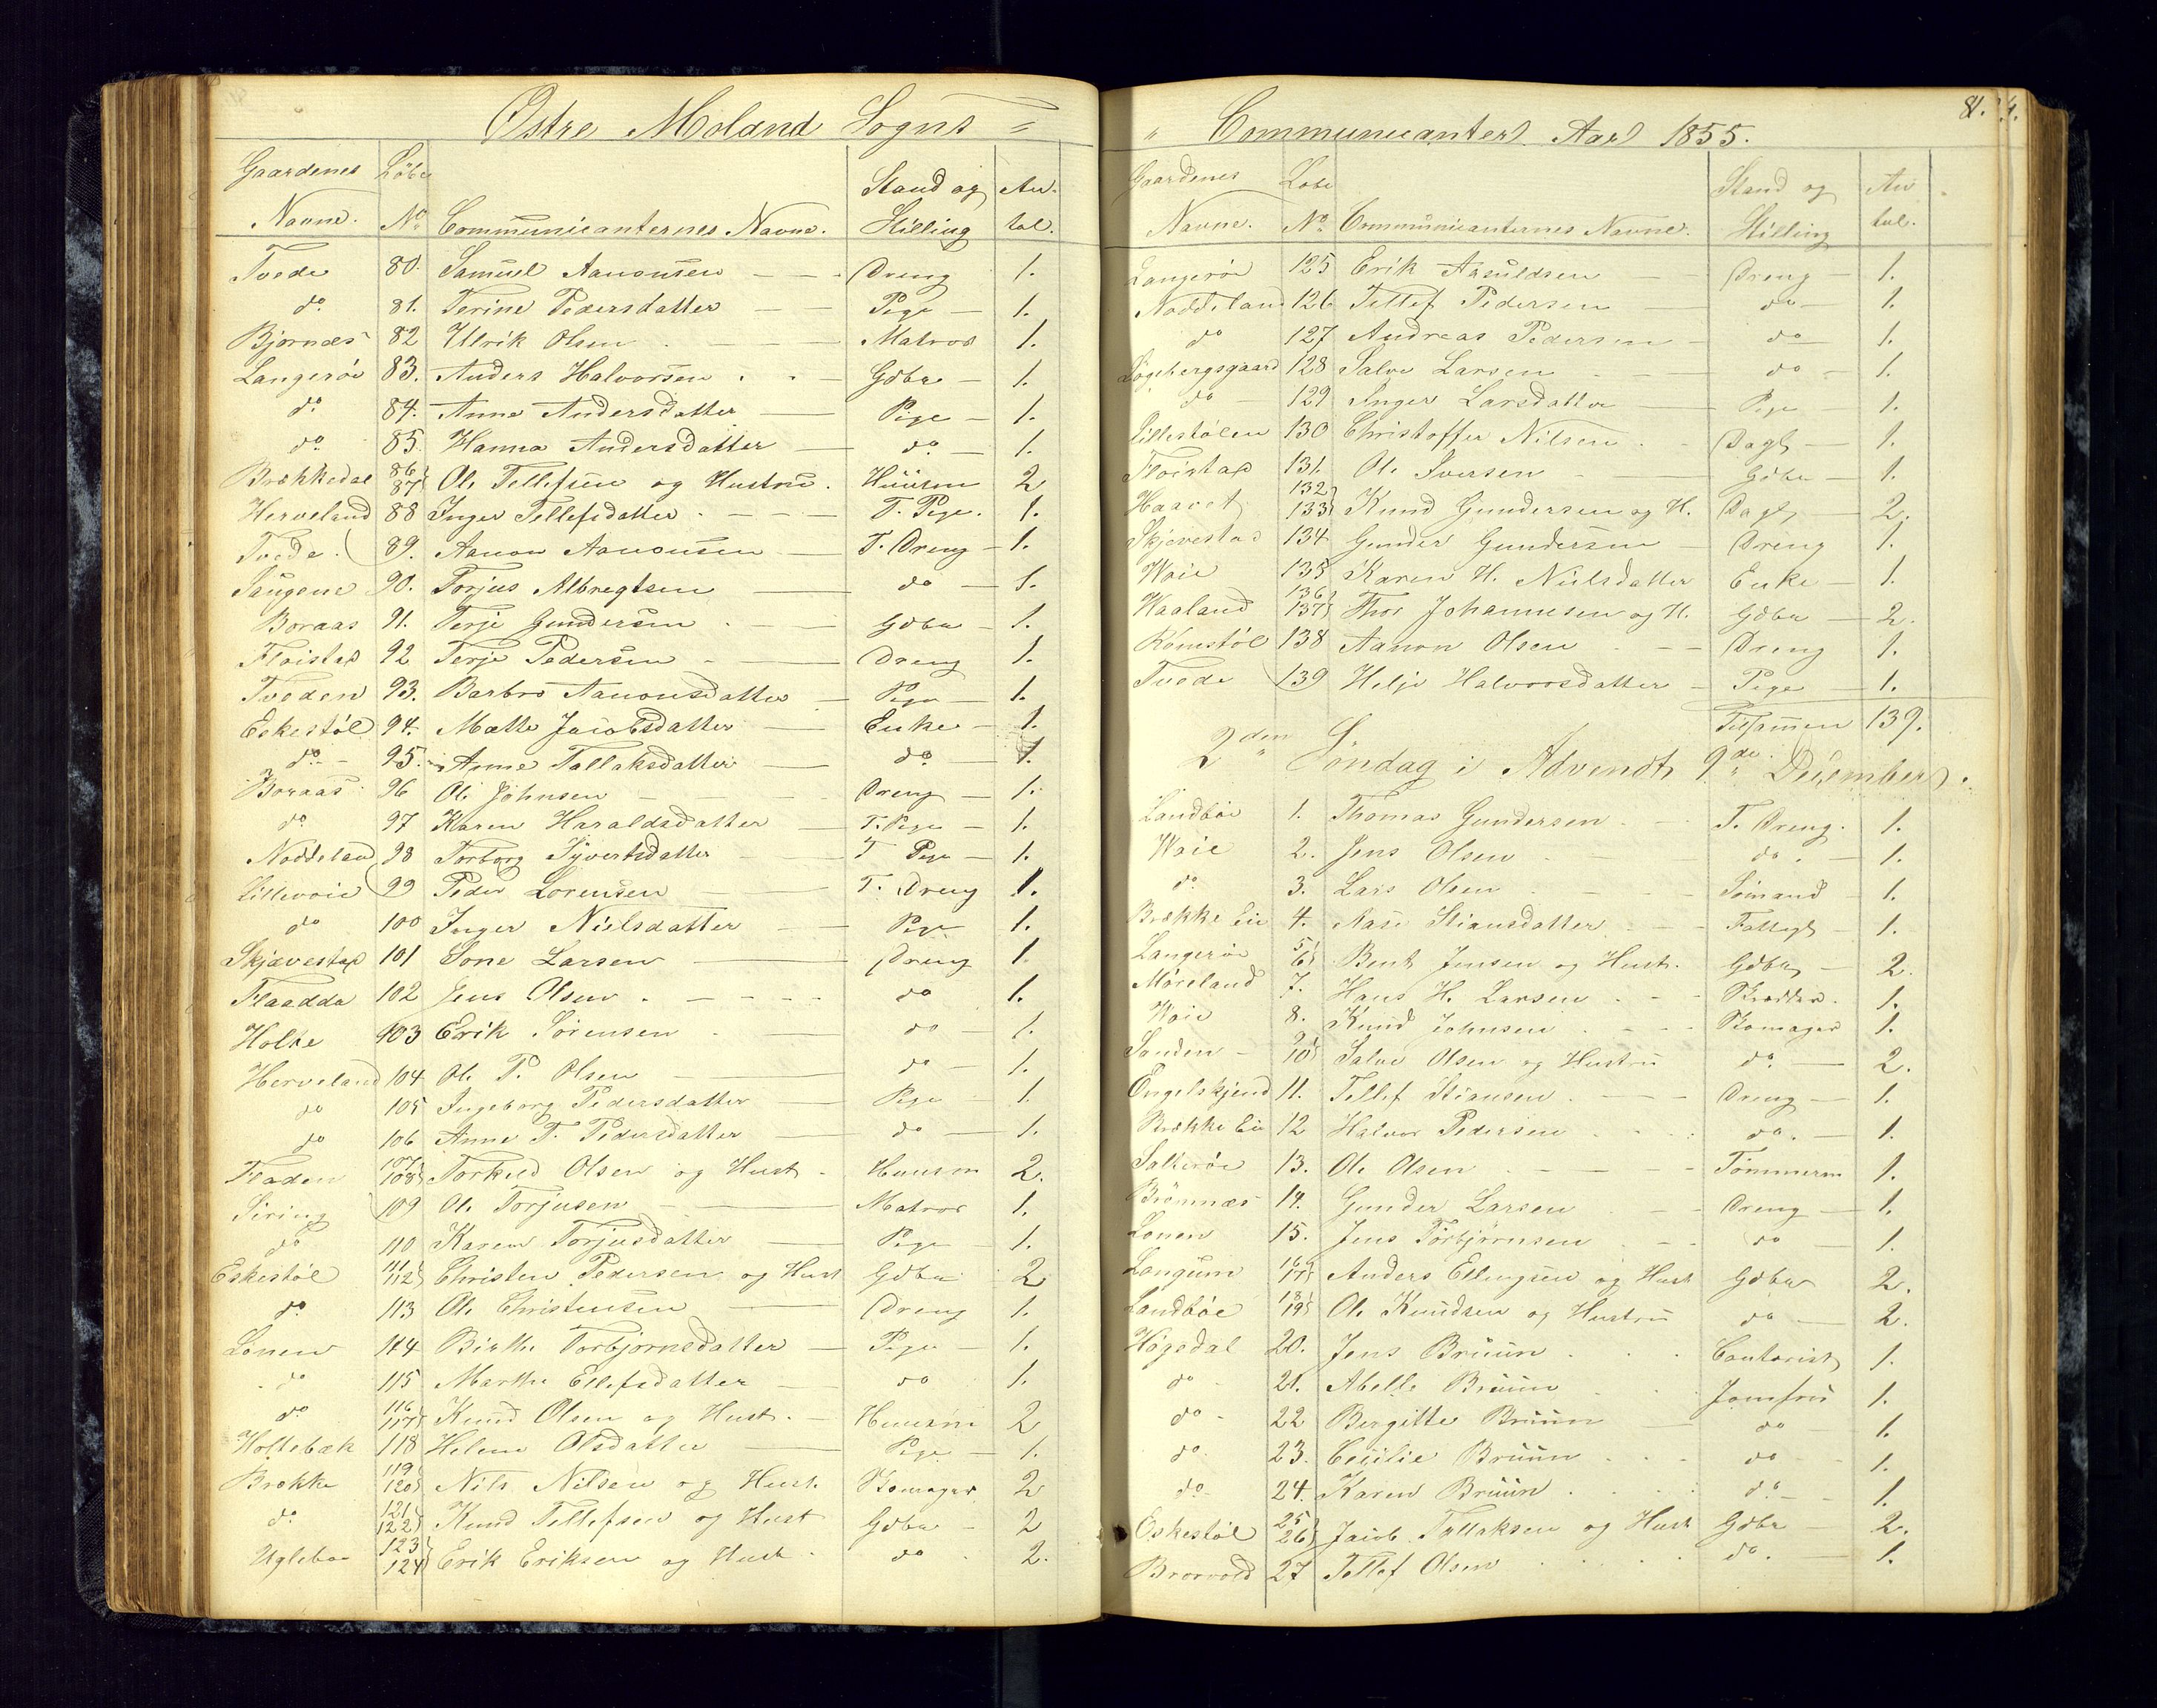 Østre Moland Sogns =
Gaardenes Navne. Løbe No Communicanternes Navne. Stand og Stilling An- tal.
Tvede 80. Samuel Aanonsen — — Dreng 1.
do 81. Terine Pedersdatter — — Pige — 1.
Bjørnæs 82 Ulrik Olsen — — Matros 1.
Langerøe 83. Anders Halvorsen — Gdbr — 1.
do 84. Anne Andersdatter — Pige — 1.
do 85. Hanna Andersdatter — do — 1.
Brækkedal 86 87 Ole Tellefsen og Hustru. Huusm 2
Herveland 88 Inger Tellefsdatter — — T. Pige. 1.
Tvede 89. Aanon Aanonsen — T. Dreng — 1.
Saugene 90. Torjus Albregtsen — do — 1.
Boraas 91. Terje Gundersen — Gdbr — 1.
Fløistad 92 Terje Pedersen — Dreng 1.
Tveden 93. Barbro Aanonsdatter — Pige — 1.
Eskestøl 94. Mathe Jacobsdatter — Enke — 1.
do — 95. Anne Tallaksdatter — do — 1.
Boraas 96 Ole Johnsen — Dreng — 1.
do 97 Karen Haraldsdatter — T. Pige — 1.
Noddeland 98 Torborg Syvertsdatter T Pige — 1.
Lillevoie 99 Peder Lorensen — T. Dreng 1.
do 100 Inger Nielsdatter — Pige 1.
Skjævestad 101 Sone Larsen — Dreng 1
Flaadda 102 Jens Olsen — do 1.
Holte 103 Erik Sørensen — do — 1.
Herveland 104 Ole P. Olsen — do — 1.
do 105 Ingeborg Pedersdatter — Pige — 1.
do 106 Anne T. Pedersdatter — do — 1.
Fladen 107 108 Torkild Olsen og Hust. Huusm 2.
Siring 109 Ole Torjusen — Matros 1.
do 110 Karen Torjusdatter — Pige — 1.
Eskestøl 111 112 Christen Pedersen og Hust Gdbr 2
do 113 Ole Christensen — Dreng 1.
Lonen 114 Birthe Torbjørnsdatter — Pige — 1.
do 115 Marthe Ellefsdatter — do 1.
do 116 117 Knud Olsen og Hust. — Huusm 2
Holtebæk 118 Helene Olsdatter — Pige — 1.
Brække 119 120 Nils Nilsen og Hust. Skomager 2
do 121 122 Knud Tellefsen og Hust Gdbr — 2
Uglebo 123 124 Erik Eriksen og Hust. do 2.
81.
" Communicanter Aar 1855.
Gaardenes Navne. Løbe No Communicanternes Navne. Stand og Stilling An tal.
Langerøe 125 Erik Aasuldsen — Dreng — 1.
Noddeland 126 Tellef Pedersen — do — 1.
do 127 Andreas Pedersen — do — 1.
Løgebergsgaard 128 Salve Larsen — do — 1.
do — 129 Inger Larsdatter — Pige — 1.
Lillestølen 130 Christoffer Nilsen. Dagl — 1.
Fløistad 131. Ole Iversen — Gdbr — 1.
Haavet 132 133 Knud Gundersen og H. Dagl — 2.
Skjævestad 134 Gunder Gundersen — Dreng 1.
Woie 135 Karen H. Nielsdatter Enke — 1.
Haaland 136 137 Thor Johannesen og H. Gdbr — 2.
Rømestøl 138 Aanon Olsen — Dreng 1.
Tvede 139 Helje Halvorsdatter — Pige — 1.
Tilsamen 139.
2den Søndag i Advendt 9de December.
Landbøe 1. Thomas Gundersen. T. Dreng. 1.
Woie 2. Jens Olsen — do. — 1.
do 3. Lars Olsen — Sømand — 1.
Brække Eie 4. Aase Stiansdatter — Fattigl — 1.
Langerøe 5 6 Bent Jensen og Hust. Gdbr — 2.
Møreland 7. Hans H. Larsen — Skrædder. 1.
Woie 8. Knud Johnsen — Skomager 1.
Sanden — 9 10 Salve Olsen og Hustru do. — 2.
Engelskjend 11. Tellef Stiansen. — Dreng — 1.
Brække Eie 12 Halvor Pedersen do. — 1.
Salterøe 13. Ole Olsen — Tømmerm 1.
Brømnæs 14. Gunder Larsen — Dreng — 1.
Lonen 15. Jens Torbjørnsen — do 1.
Langum 16 17 Anders Ellingsen og Hust Gdbr 2.
Landbøe 18 19 Ole Knudsen og Hustru do — 2.
Høgedal 20. Jens Bruun . Contorist 1.
do 21. Abelle Bruun Jomfru 1.
do — 22 Bergitte Bruun — do 1.
do 23. Cecilie Bruun . . do — 1.
do — 24. Karen Bruun . . do — 1.
Eskestøl 25 26 Jacob Tallaksen og Hust Gdbr — 2.
Brorvold 27 Tellef Olsen . . do. — 1.